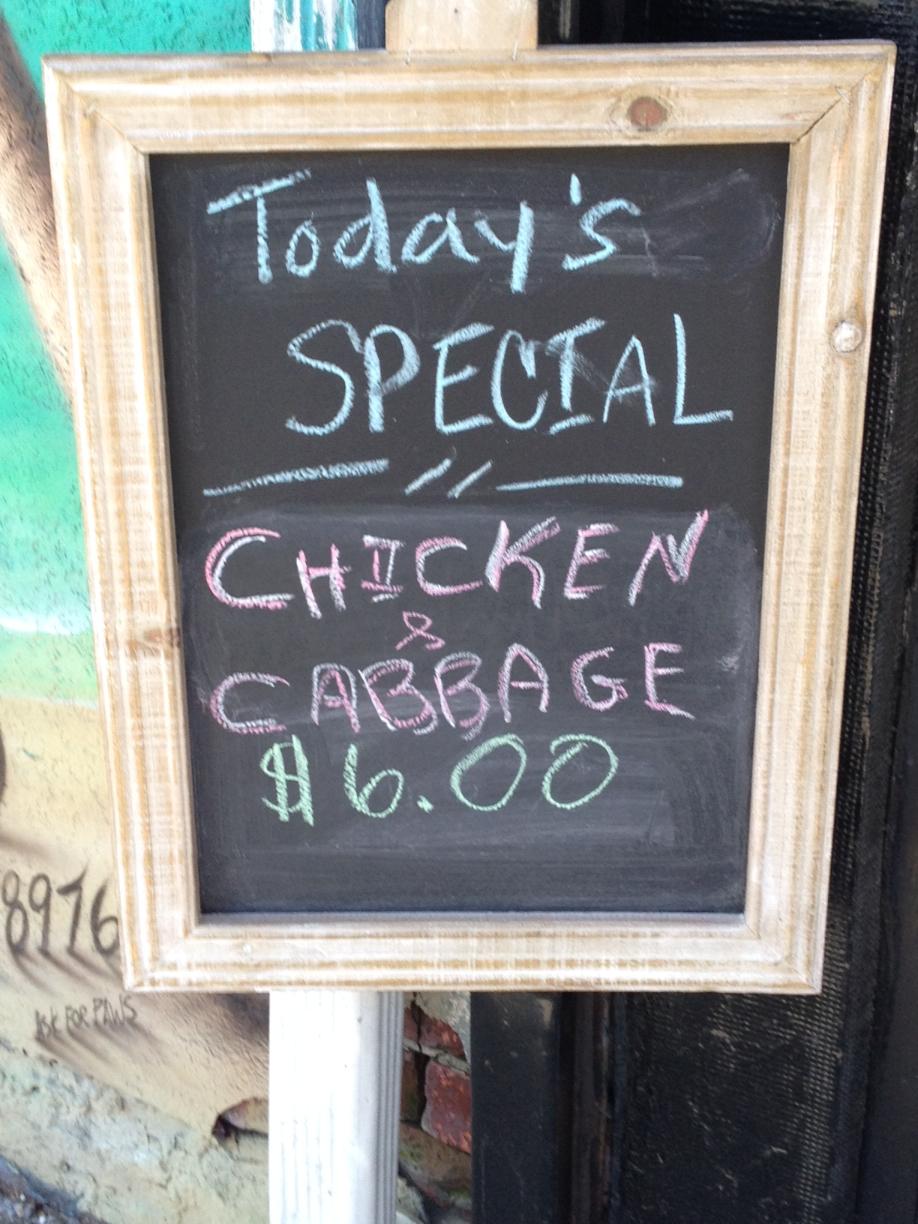 Today's
SPECIAL
CHICKEN
&
CABBAGE
$6.00
8976
ASK FOR PAWS